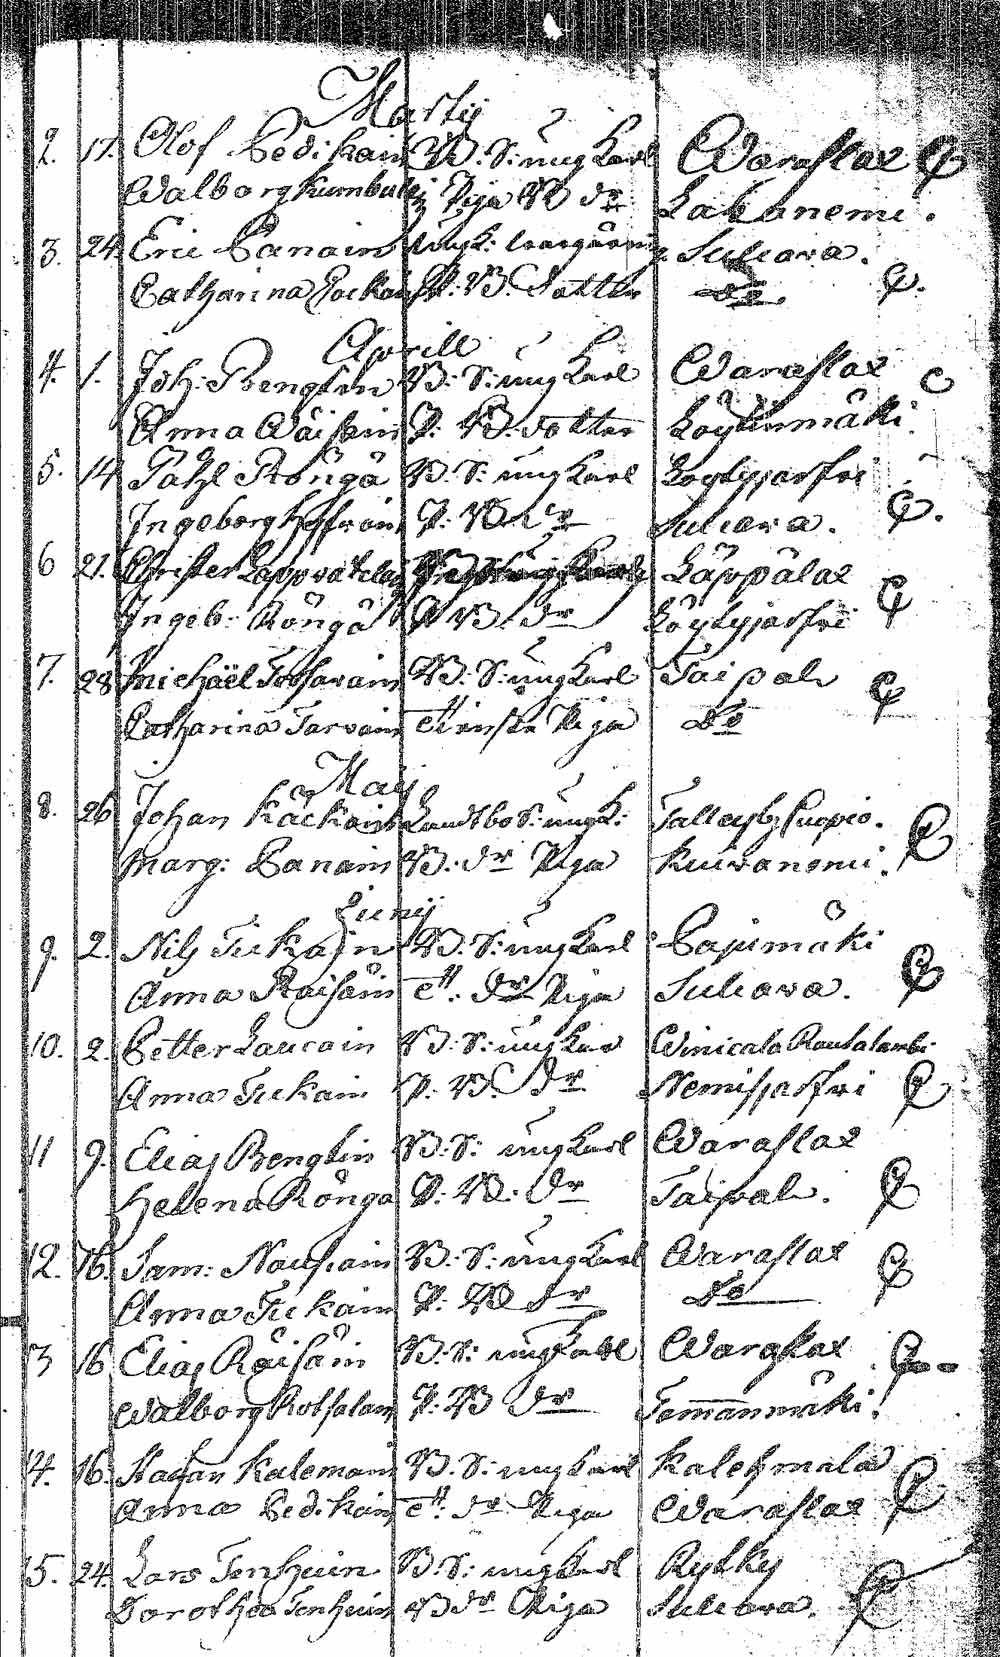 Martij
2. 17. Olof Pedikain B: S: ung Karl Waraslax
Walborg Kumbulain Piga B dr Lakanemi.
3. 24. Eric Panain ungk: Suleava.
Catharina P: B. Dotter Do
Aprill
4. 1. Joh: Bengtin B: S: ung Karl Waraslax
Anna Wäisäin P: B. dotter Löytinmäki.
5. 14 Påhl Röngä B S: ung Karl Löytyjerfvi
Ingeborg P: B dr Suleava.
6 21. Christer Läppälax
Ingeb: Röngä P B. dr Löytyjerfvi
7. 28 Michaël B: S: ung Karl Taipale
Catharina Tarvain Piga Do
Maij
8. 26 Johan Käckäin Landtbo S: ungk: Kuopio.
Marg: Panain B: dr Piga Kuivanemi.
Junij
9. 2. Nils Tickain B. S: ung Karl Papimäki
Anna Räisäin dr Piga Suleava.
10. 2. Petter Laucain B: S: ung Kar Winicala Rautalambi
Anna Tickain P. B. dr Nemisjerfvi
11 9. Elias Bengtin B: S: ung Karl Waraslax
Helena Rönga P: B: dr Taipale.
12. 16. Sam: Nousiain B: S: ung Karl Waraslax
Anna Tickain P: B dr Do
13 16 Elias Räisäin B: S: ung Karl Waraslax
Walborg Rotsalain P: B dr Temmanmäki.
14. 16. Staffan Kalemain B. S: ung Karl Kalesmala
Anna Pedikain dr Piga Waraslax
15. 24. Lars Tenhuin B. S: ung Karl Rytky
Dorothea Tenhuin B dr Piga Suleava.